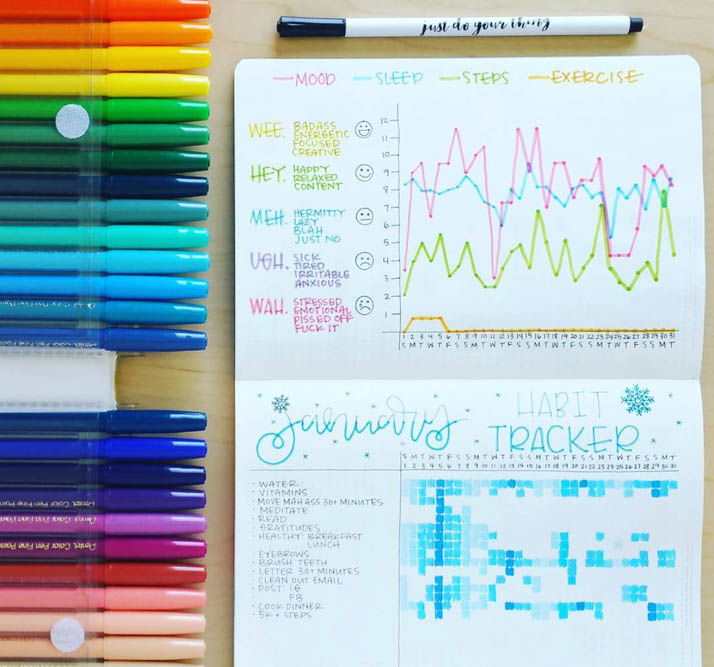 just do your thing
MOOD SLEEP STEPS EXERCISE
WEE. BADASS
ENERGETIC
FOCUSED
CREATIVE
HEY. HAPPY
RELAXED
CONTENT
MEH. HERMITTY
LAZY
BLAH
JUST NO
UGH. SICK
TIRED
IRRITABLE
ANXIOUS
WAH. STRESSED
EMOTIONAL
PISSED OFF
FUCK IT
12
11
10
9
8
7
6
5
4
3
2
1
1 2 3 4 5 6 7 8 9 10 11 12 13 14 15 16 17 18 19 20 21 22 23 24 25 26 27 28 29 30 31
S M T W T F S S M T W T F S S M T W T F S S M T W T F S S M T
january HABIT
TRACKER
S M T W T F S S M T W T F S S M T W T F S S M T W T F S S M T
1 2 3 4 5 6 7 8 9 10 11 12 13 14 15 16 17 18 19 20 21 22 23 24 25 26 27 28 29 30 31
· WATER
· VITAMINS
· MOVE MAH ASS 30+ MINUTES
· MEDITATE
· READ
· GRATITUDES
· HEALTHY: BREAKFAST
LUNCH
· EYEBROWS
· BRUSH TEETH
· LETTER 30+ MINUTES
· CLEAN OUT EMAIL
· POST: IG
FB
· COOK DINNER
· 5K+ STEPS
Pentel Color Pen Fine Point
Pentel Color Pen Fine Point